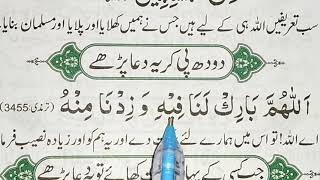 سب تعریفیں اللہ ہی کے لیے ہیں جس نے ہمیں کھلایا اور پلایا اور مسلمان بنایا۔
دودھ پی کر یہ دعا پڑھے
اَللّٰهُمَّ بَارِكْ لَنَا فِيْهِ وَ زِدْنَا مِنْهُ (ترمذی: 3455)
اے اللہ! تو اس میں ہمارے لئے دے اور یہ ہم کو اور زیادہ نصیب فرما
جب کسی کے یہاں کھائے تو یہ دعا پڑھے